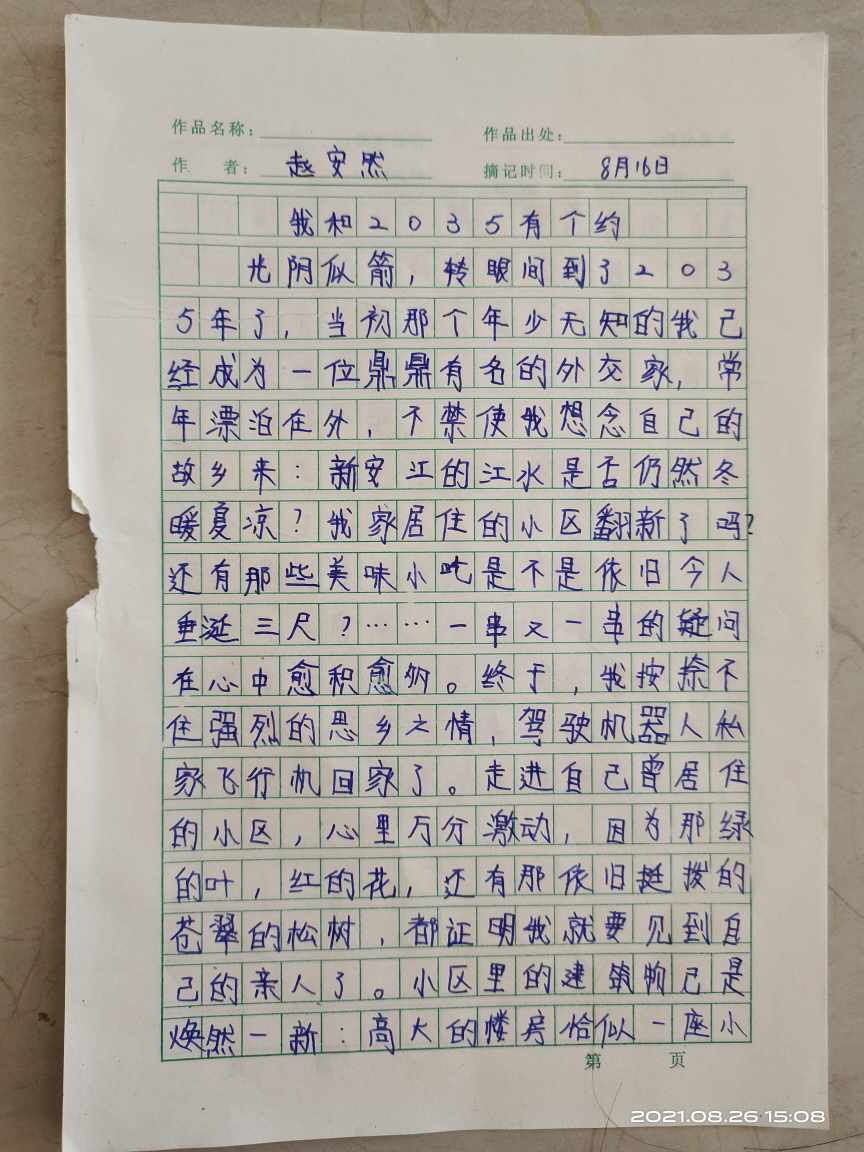 作品名称： 作品出处：
作 者： 赵安然 摘记时间： 8月16日
我和2035有个约
光阴似箭，转眼间到了203
5年了，当初那个年少无知的我已
经成为一位鼎鼎有名的外交家，常
年漂泊在外，不禁使我想念自己的
故乡来：新安江的江水是否仍然冬
暖夏凉？我家居住的小区翻新了吗？
还有那些美味小吃是不是依旧令人
垂涎三尺？……一串又一串的疑问
在心中愈积愈多。终于，我按捺不
住强烈的思乡之情，驾驶机器人私
家飞行机回家了。走进自己曾居住
的小区，心里万分激动，因为那绿
的叶，红的花，还有那依旧挺拨的
苍翠的松树，都证明我就要见到自
己的亲人了。小区里的建筑物已是
焕然一新：高大的楼房恰似一座小
第 页
2021.08.26 15:08